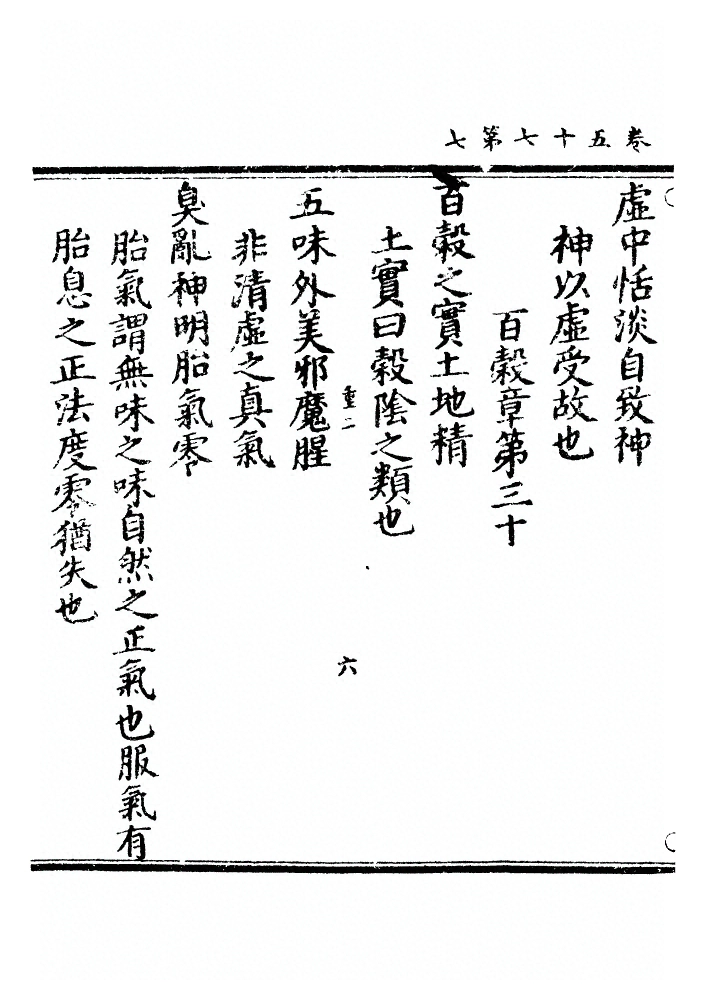 卷五十七第七
虛中恬淡自致神
神以虛受故也
百穀章第三十
百穀之實土地精
土實曰穀陰之類也
重二
六
五味外美邪魔腥
非清虛之真氣
臭亂神明胎氣零
胎氣謂無味之味自然之正氣也服氣有
胎息之正法度零猶失也